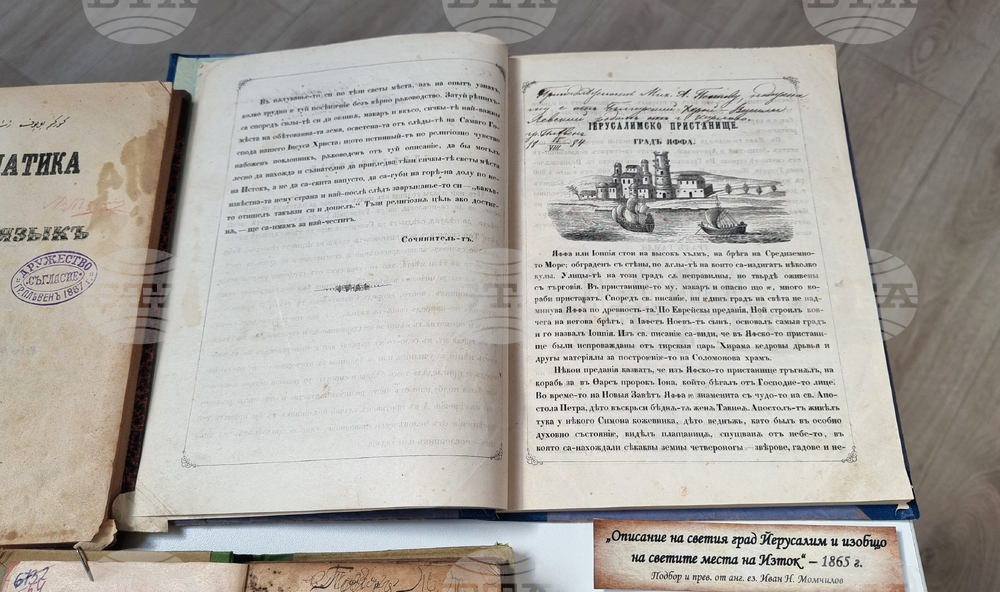 АТИКА
ЯЗЫКЪ
ДРУЖЕСТВО
„СЪГЛАСИЕ“
ГР. ПЛѢВЕНЪ 1887 г.
Въ пътуванье-то си по тѣзи светы мѣста, на опытъ узнахъ
колко трудно е туй посѣщение безъ вѣрно рѫководство.
са споредъ силы-тѣ си да опиша, макаръ и вкѫсо, сичкы-тѣ най-важны
мѣста на обѣтована-та земя, осветена-та отъ слѣды-тѣ на Самаго Го-
спода нашего Іисуса Христа;
набоженъ поклонникъ, рѫководенъ отъ туй описание, да бы моглъ
лесно да нахожда и съзнателно да пригледва тѣзи сичкы-тѣ светы мѣста
на Истокъ, а не да са-скита напусто, да са-губи на горѣ-на долу по не-
извѣстна-та нему страна и най-послѣ слѣдъ завръщанье-то си — „какъв-
то отишелъ такъвзи си и дошелъ.“ Тъзи религіозна цѣль ако достиг-
на, — ще са-имамъ за най-честитъ.
Сочинитель-тъ.
ІЕРУСАЛИМСКО ПРИСТАНИЩЕ.
ГРАДЪ ЯФФА.
Яффа или Іоппія стои на высокъ хълмъ, на брѣга на Средиземно-
то Море; обграденъ съ стѣны, по ѫглы-тѣ на които са-надигатъ нѣколко
кулы. Улицы-тѣ на този градъ сѫ неправилны, но твърдѣ оживены
съ търговія. Въ пристанище-то му, макаръ и опасно що е, много ко-
раби приставатъ. Споредъ св. писаніе, ни единъ градъ на свѣта не над-
минува Яффа по древность-та. По Еврейскы преданія, Ной строилъ ков-
чега на негова брѣгъ, а Іафетъ Ноевъ-тъ сынъ, основалъ самыя градъ
и го назвалъ Іоппія. Изъ св. писаніе са-види, че въ Яфско-то пристани-
ще были испроваждани отъ тирскыя царь Хирама кедровы дръвья и
другы матеріялы за построеніе-то на Соломонова храмъ.
Нѣкои преданія казватъ, че изъ Яфско-то пристанище тръгнѫлъ, на
корабь за въ Фарсъ пророкъ Іона, който бѣгалъ отъ Господне-то лице.
Во време-то на Новыя Завѣтъ Яффа е знаменита съ чудо-то на св. Апо-
стола Петра, дѣто въскръси бѣднѫ-тѫ женѫ Тавиѳѫ. Апостолъ-тъ живѣлъ
тука у нѣкого Симона кожевника, дѣто веднѫжь, като былъ въ особно
духовно състояніе, видѣлъ плащаница, спущванъ отъ небе-то, въ
които са-находжали сѣкаквы земны четвероногы — звѣрове, гадове и не-
„Описание на светия град Йерусалим и изобщо
на светите места на Изток“ – 1865 г.
Подбор и прев. от анг. ез. Иван Н. Момчилов